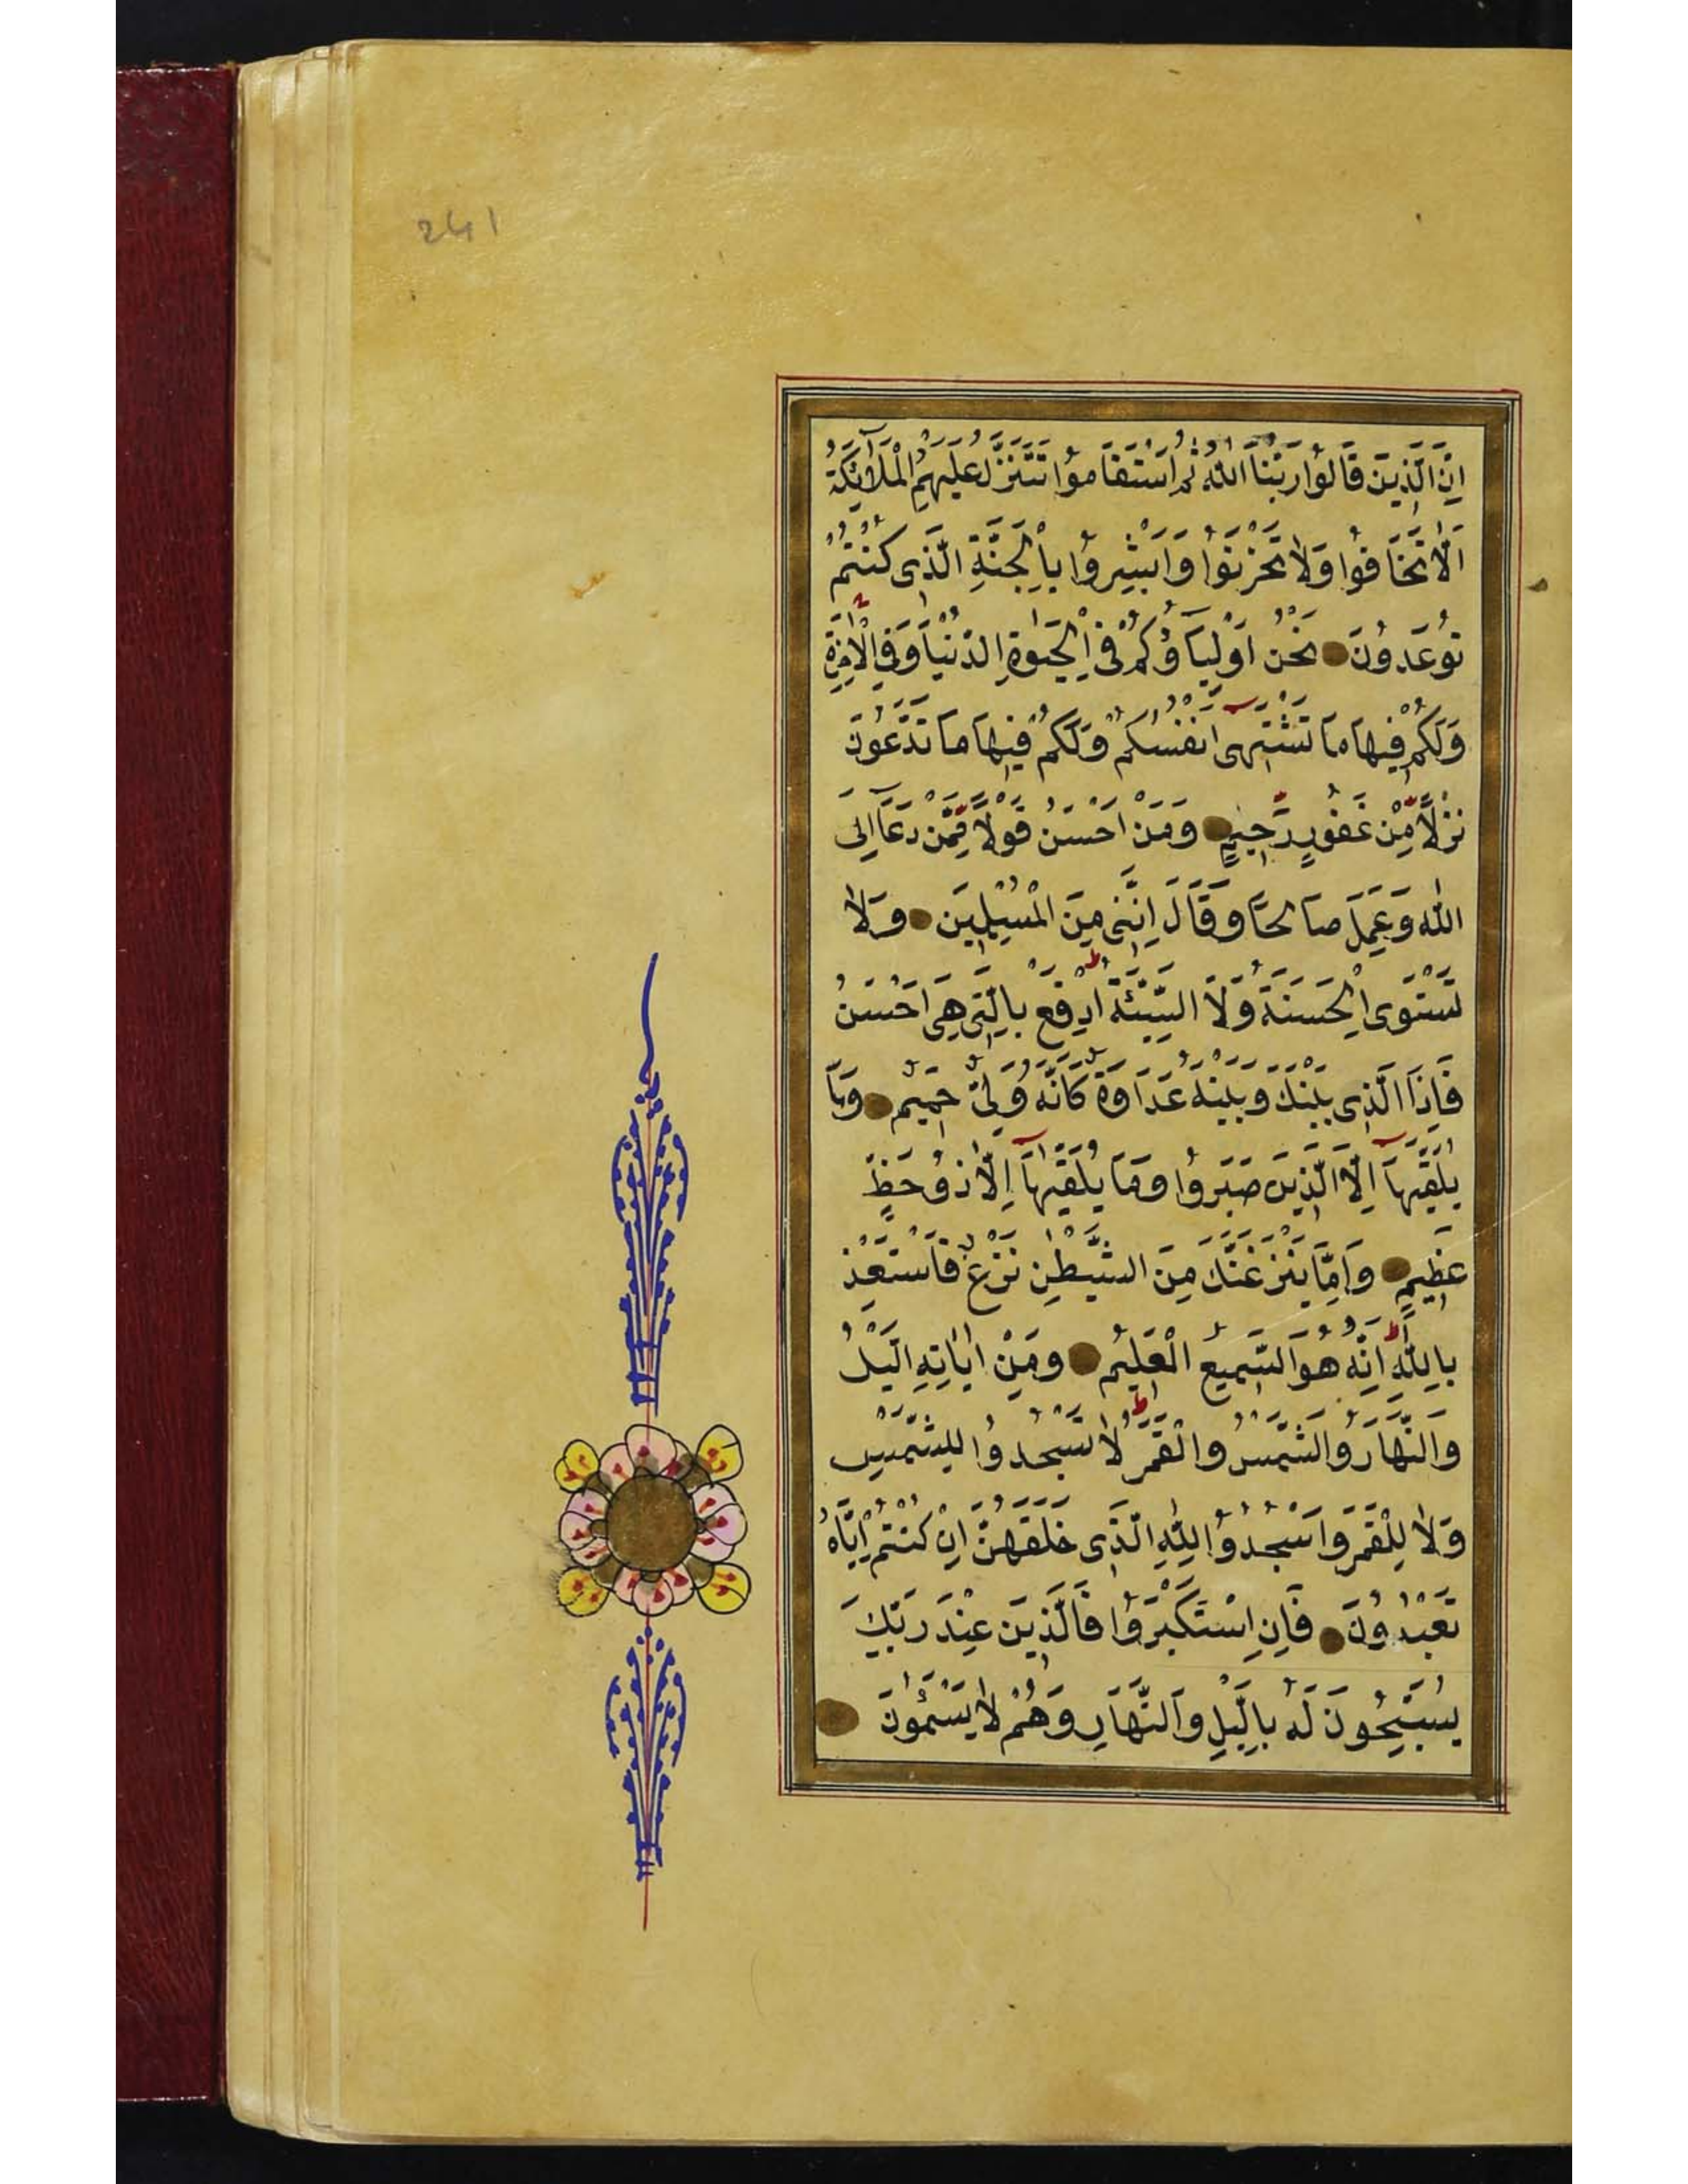 241
اِنَّ الَّذِينَ قَالُوا رَبُّنَا اللّٰهُ ثُمَّ اسْتَقَامُوا تَتَنَزَّلُ عَلَيْهِمُ الْمَلَآئِكَةُ
اَلَّا تَخَافُوا وَلَا تَحْزَنُوا وَاَبْشِرُوا بِالْجَنَّةِ الَّتِى كُنْتُمْ
تُوعَدُونَ نَحْنُ اَوْلِيَآؤُكُمْ فِى الْحَيٰوةِ الدُّنْيَا وَفِى الْاٰخِرَةِ
وَلَكُمْ فِيهَا مَا تَشْتَهِىٓ اَنْفُسُكُمْ وَلَكُمْ فِيهَا مَا تَدَّعُونَ
نُزُلًا مِّنْ غَفُورٍ رَّحِيمٍ وَمَنْ اَحْسَنُ قَوْلًا مِّمَّنْ دَعَآ اِلَى
اللّٰهِ وَعَمِلَ صَالِحًا وَقَالَ اِنَّنِى مِنَ الْمُسْلِمِينَ وَلَا
تَسْتَوِى الْحَسَنَةُ وَلَا السَّيِّئَةُ ط اِدْفَعْ بِالَّتِى هِىَ اَحْسَنُ
فَاِذَا الَّذِى بَيْنَكَ وَبَيْنَهُ عَدَاوَةٌ كَاَنَّهُ وَلِىٌّ حَمِيمٌ وَمَا
يُلَقّٰيهَآ اِلَّا الَّذِينَ صَبَرُوا وَمَا يُلَقّٰيهَآ اِلَّا ذُو حَظٍّ
عَظِيمٍ وَاِمَّا يَنْزَغَنَّكَ مِنَ الشَّيْطٰنِ نَزْغٌ فَاسْتَعِذْ
بِاللّٰهِ ط اِنَّهُ هُوَ السَّمِيعُ الْعَلِيمُ وَمِنْ اٰيَاتِهِ الَّيْلُ
وَالنَّهَارُ وَالشَّمْسُ وَالْقَمَرُ ط لَا تَسْجُدُوا لِلشَّمْسِ
وَلَا لِلْقَمَرِ وَاسْجُدُوا لِلّٰهِ الَّذِى خَلَقَهُنَّ اِنْ كُنْتُمْ اِيَّاهُ
تَعْبُدُونَ فَاِنِ اسْتَكْبَرُوا فَالَّذِينَ عِنْدَ رَبِّكَ
يُسَبِّحُونَ لَهُ بِالَّيْلِ وَالنَّهَارِ وَهُمْ لَا يَسْئَمُونَ